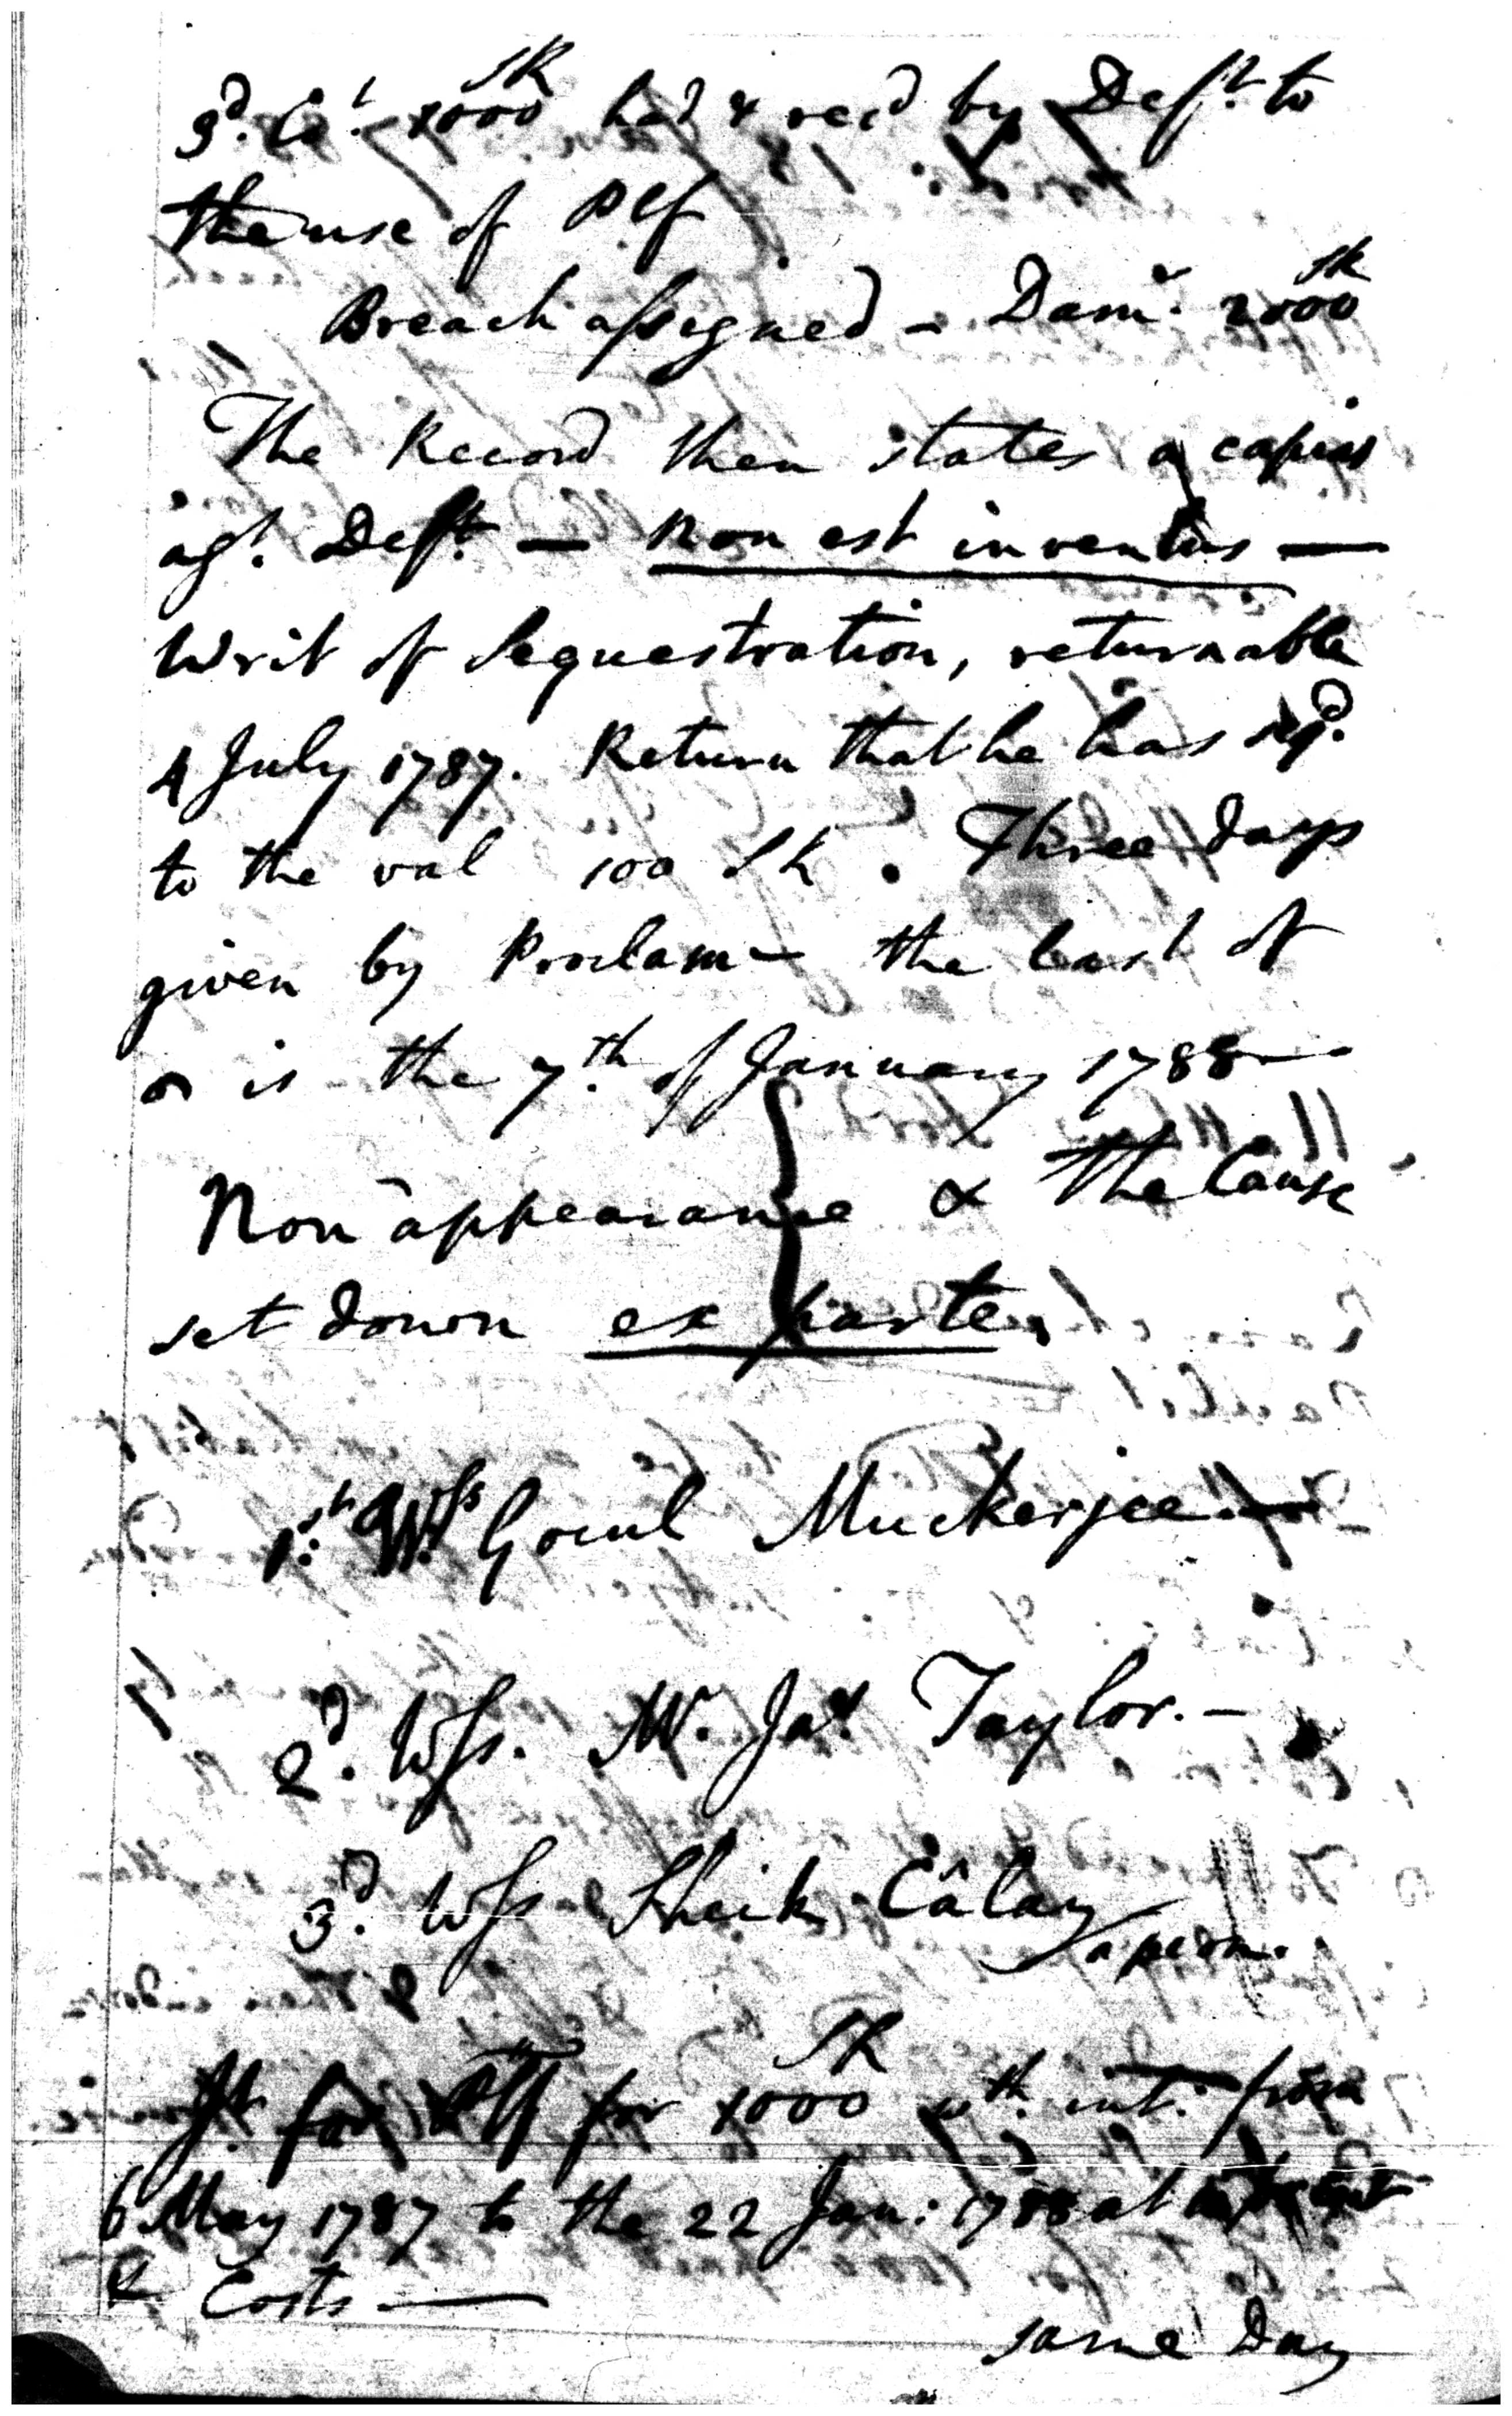 3d. Ct. 1000 SR had & recd by Deft. to
the use of Plf
Breach assigned – Dame. 2000 SR
The Record then states a capias
agt. Deft. — non est inventus —
Writ of Sequestration, returnable
4 July 1787. Return that he has sqd.
to the val 100 SR. Three days
given by Proclam– the last of
is the 7th. of January 1788 —
Non appearance & the Cause
set down ex parte.
1st. Wss Gocul Muckerjee. —
2d. Wss. Mr. Jas. Taylor. –
3d. Wss Sheik Câlay
a peon.
Jt. for Plf for 1000 SR wth. int. from
6 May 1787 to the 22 Jan: 1788 at
& Costs —
same Day